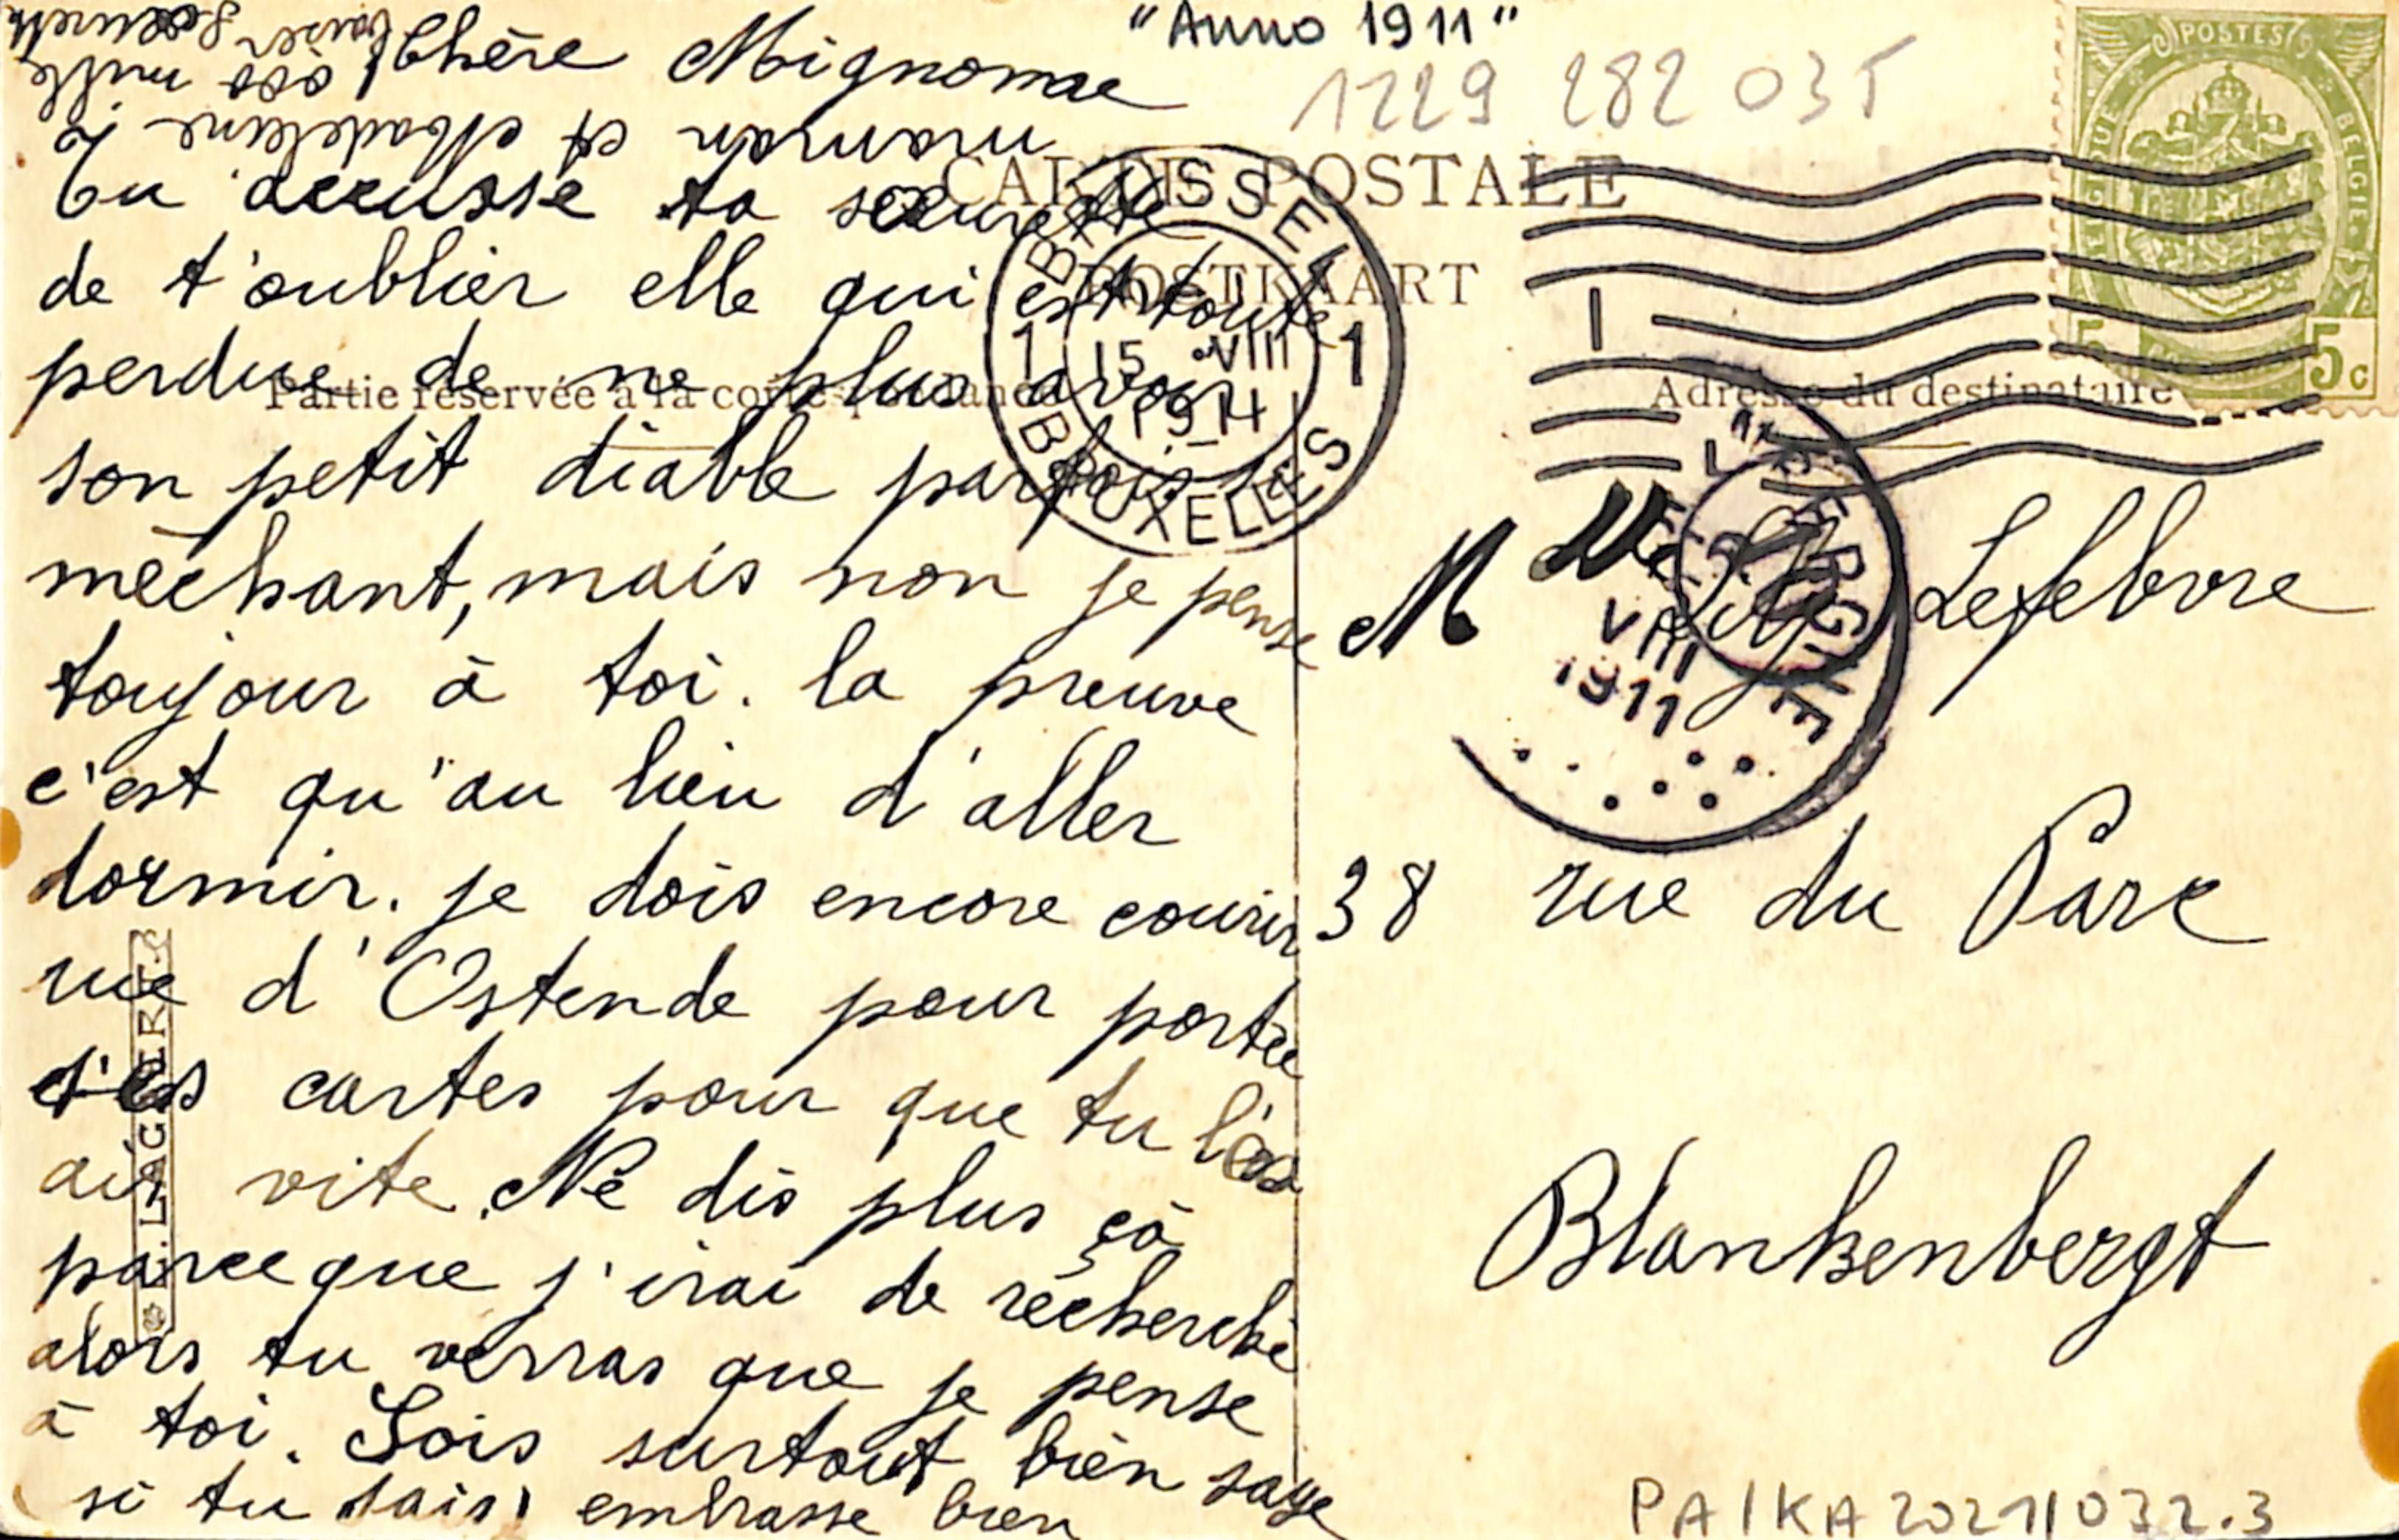 "Anno 1911"
1229 282 035
CARTE POSTALE
POSTKAART
Partie réservée à la correspondance
Adresse du destinataire
POSTES
BELGIQUE BELGIE
5 5c
BRUSSEL
1 15 VIII 1
1911
BRUXELLES
VIII
1911
Chère Mignonne
tu accusse ta sœurette
de t'oublier elle qui est toute
perdue de ne plus avoir
son petit diable parfois si
mèchant, mais non je pense
toujour à toi. la preuve
c'est qu'au lieu d'aller
dormir. je dois encore courir
rue d'Ostende pour porter
cartes pour que tu
ais vite. Ne dis plus çà
parceque j'irai de rècherchè
alors tu verras que je pense
à toi. Sois surtout bien sage
si tu sais, embrasse bien
maman et Madeleine
mille
baiser sœurette
M Lefebvre
38 rue du Parc
Blankenbergt
LAGAERT
PA/KA20211032.3